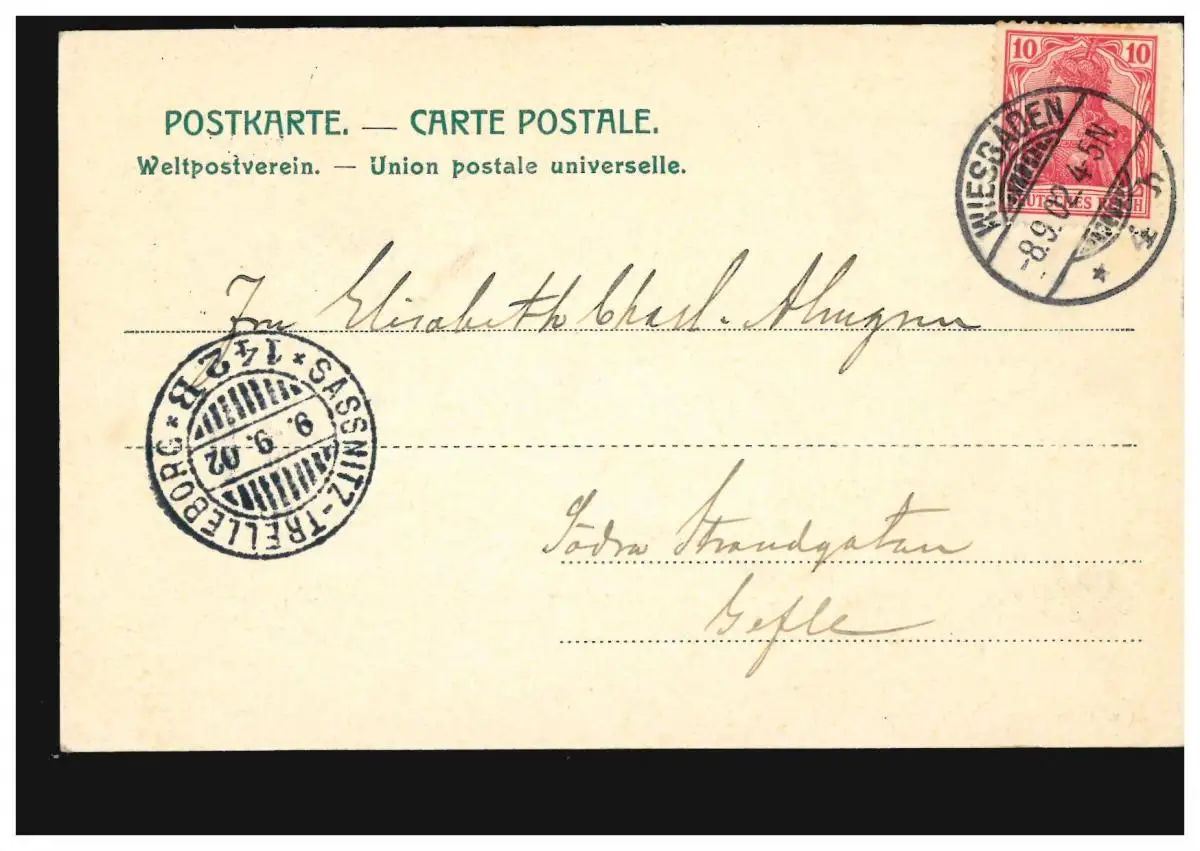 POSTKARTE. — CARTE POSTALE.
Weltpostverein. — Union postale universelle.
10 10
DEUTSCHES REICH
WIESBADEN
-8.9.02.4-5N.
* 4 h
Fru Elisabeth Charl. Almgren
SASSNITZ-TRELLEBORG
* 142 B *
9. 9. 02
Södra Strandgatan
Gefle